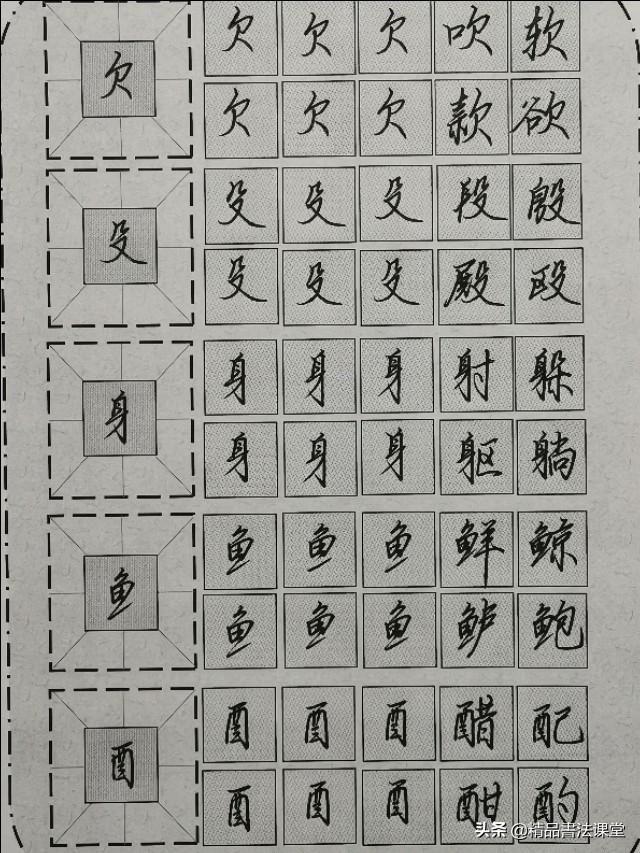 欠 欠 欠 欠 吹 软
欠 欠 欠 款 欲
殳 殳 殳 殳 段 殷
殳 殳 殳 殿 殴
身 身 身 身 射 躲
身 身 身 躯 躺
鱼 鱼 鱼 鱼 鲜 鲸
鱼 鱼 鱼 鲈 鲍
酉 酉 酉 酉 醋 配
酉 酉 酉 酣 酌
头条 @精品书法课堂